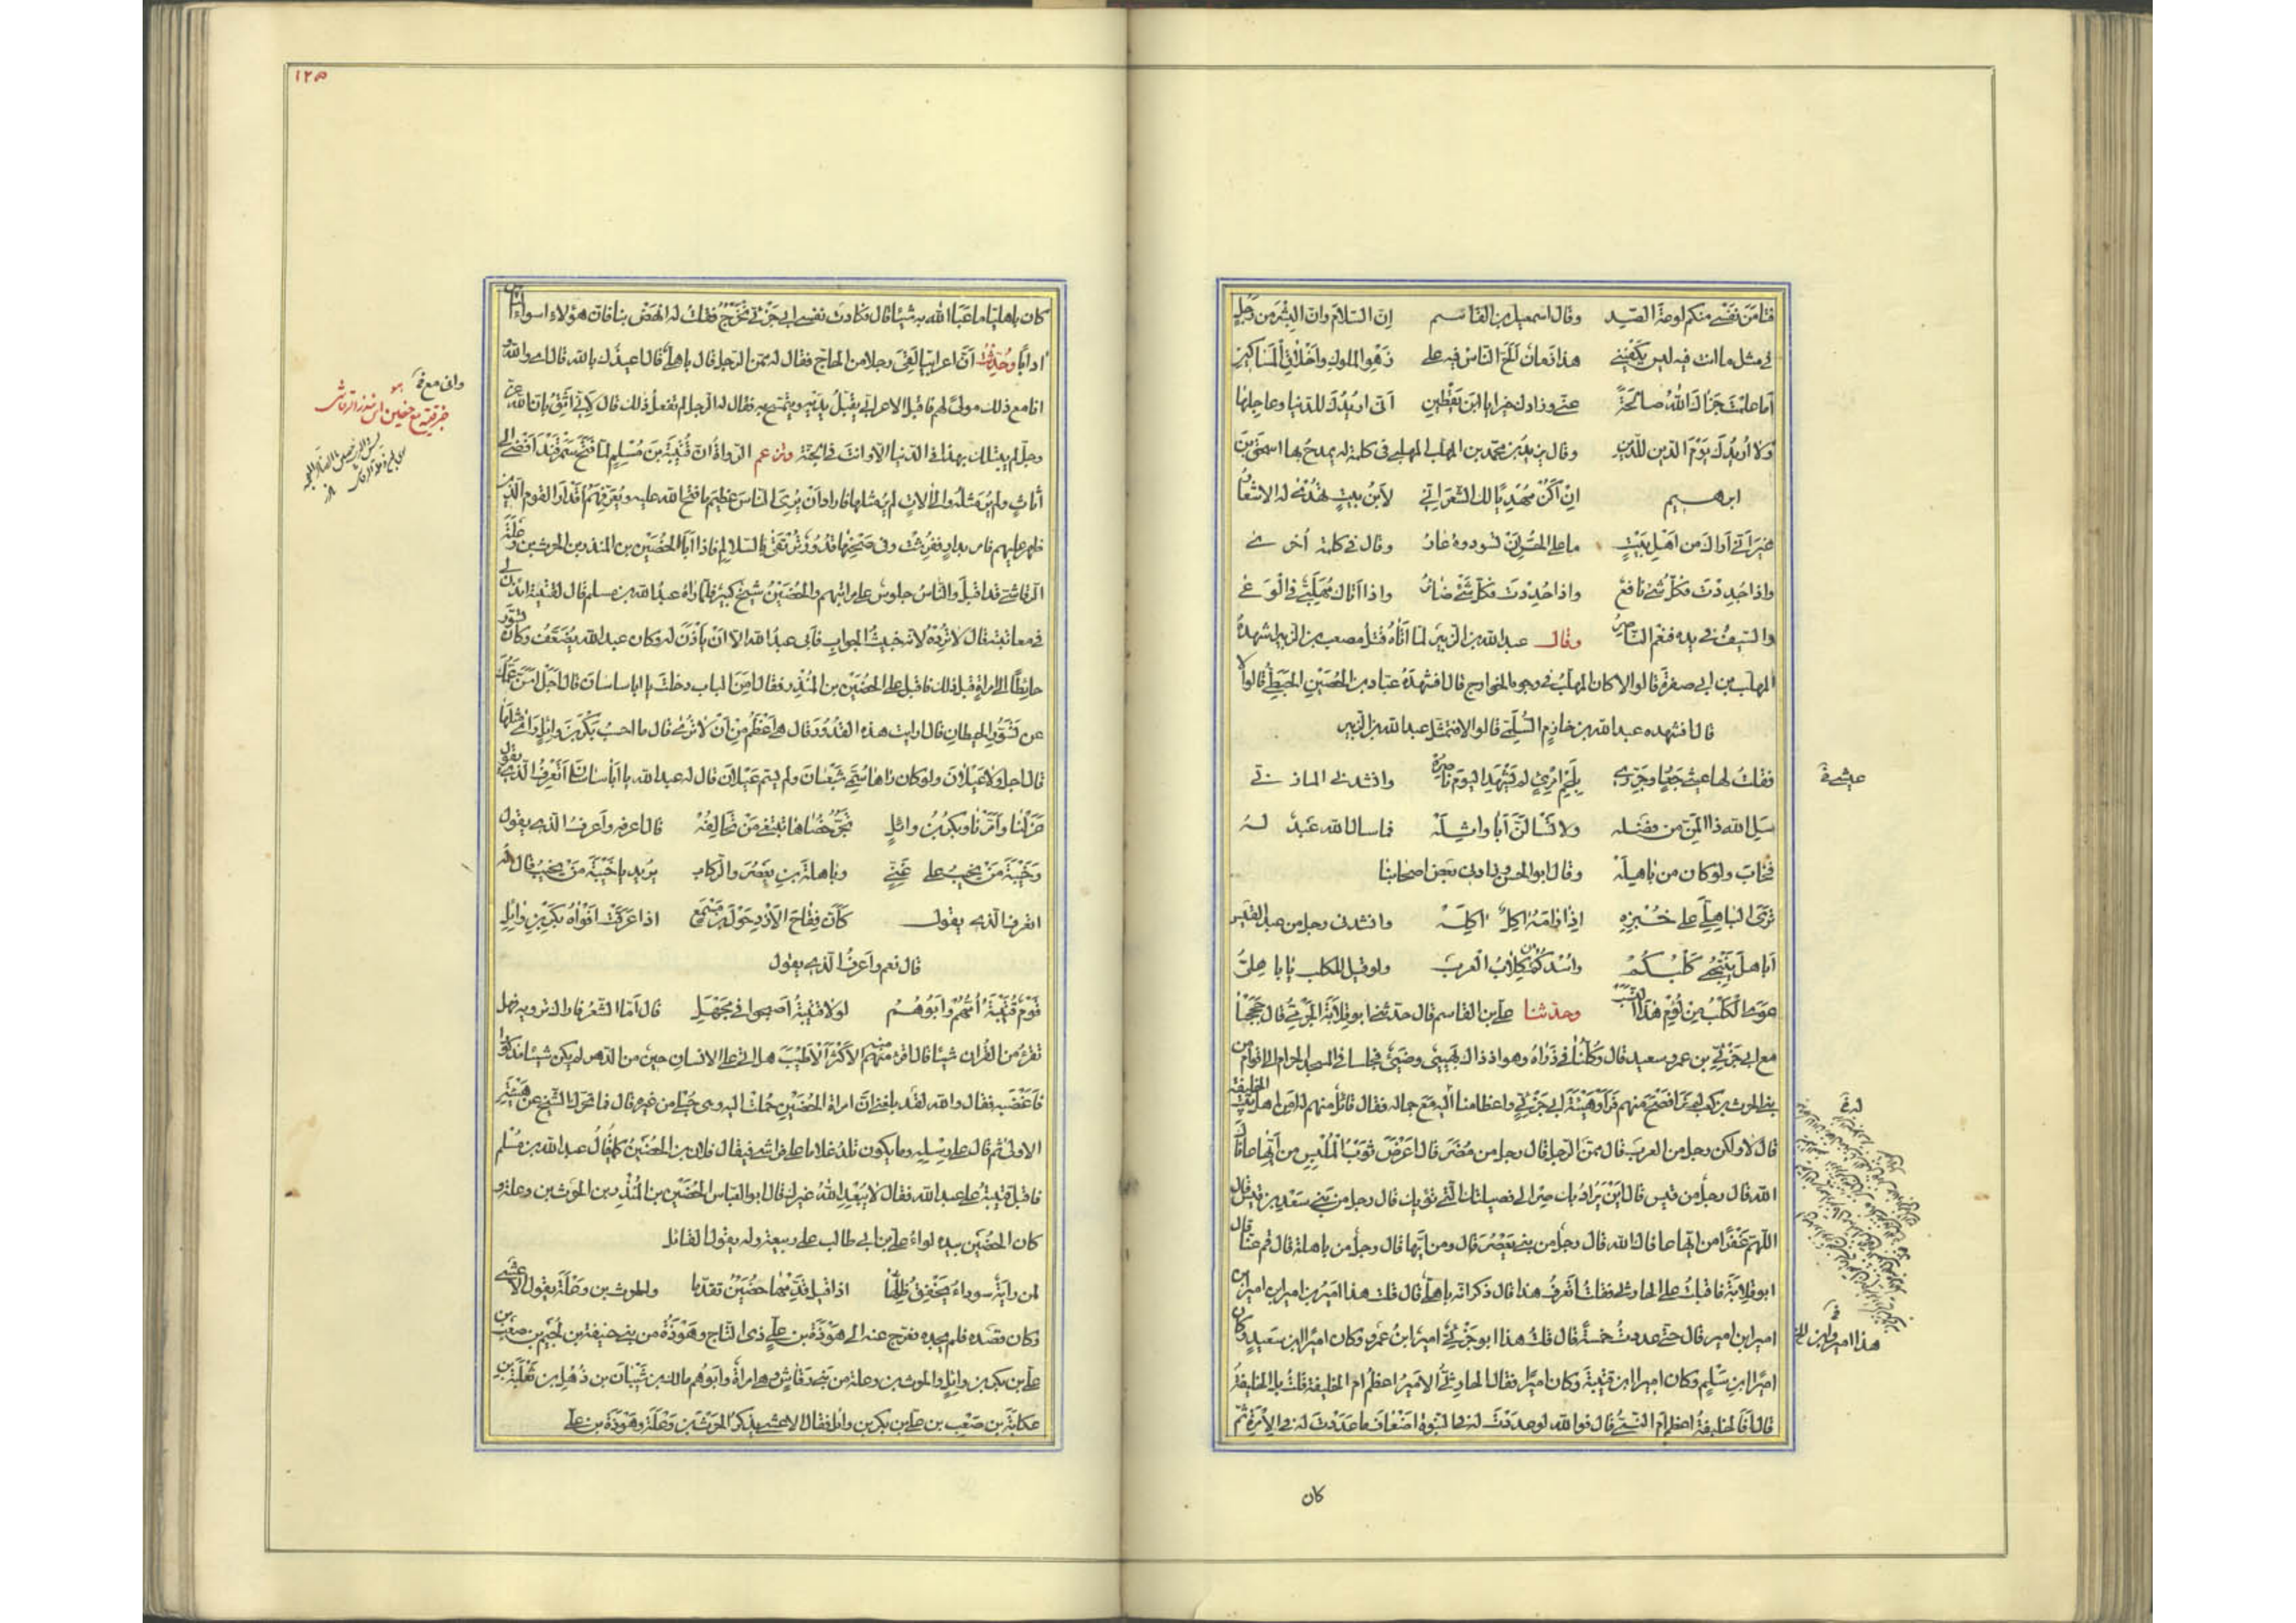 فتًا مَن نفسي منكم لوعة الصيد وقال اسمعيل بن القاسم إن السلام وان البشر من رجل
في مثل ما انت فيه ليس يكفيني هذا زمان ألح الناس فيه على زهو الملوك واخلاق المساكين
أما علمت جزاك الله صالحة عني وزادك خيرا يا ابن يقطين اني اريدك للدنيا وعاجلها
ولا اريدك يوم الدين للدين وقال يزيد بن محمد بن المهلب المهلبي في كلمة له يمدح بها اسحق بن
ابرهيم ان أكن مهديا لك الشعر اني لابن بيت تهدى له الاشعار
غير أني أراك من اهل بيت ما على الحر أن تسودوه عار وقال في كلمة أخرى
واذا جُدِدْتَ فكل شئ نافع واذا حُدِدْتَ فكل شئ ضار واذا أتاك مهلبي في الوغى
والسيف في يده فنعم الناصر وقال عبد الله بن الزبير لما أتاه قتل مصعب بن الزبير اشهده
المهلب بن ابي صفرة قالوا لا كان المهلب في وجوه الخوارج قال افشهده عباد بن الحصين الحبطي قالوا لا
قال افشهده عبد الله بن خازم السلمي قالوا لا فتمثل عبد الله بن الزبير
فقلت لها عيثي جعار وجرري بلحم امرئ لم يشهد اليوم ناصره وانشدني المازني
سل الله ذا المن من فضله ولا تسألن أبا واثله فما سأل الله عبد له
فخاب ولو كان من باهله وقال ابو الحسن وزادني بعض اصحابنا
ترى الباهلي على خبزه إذا رامه آكل آكله وانشدني رجل من عبد القيس
أباهل ينبحني كلبكم وأسدكم ككلاب العرب ولو قيل للكلب يا باهلي
عوى الكلب من لؤم هذا النسب وحدثنا علي بن القاسم قال حدثني ابو قلابة الجرمي قال حججنا
مع ابي جزء بن عمرو بن سعيد قال وكنا في ذراه وهو اذ ذاك بهي وضي فجلسنا في المسجد الحرام الى اقوام من
بني الحرث بن كعب لم نر افصح منهم فرأوا هيئة ابي جزء واعظامنا اليه مع جماله فقال قائل منهم له أمن اهل بيت الخليفة
قال لا ولكن رجل من العرب قال ممن الرجل قال رجل من مضر قال اعرض ثوب الملبس من أيها عافاك
الله قال رجل من قيس قال أين يراد بك صر الى فصيلتك التي تؤويك قال رجل من بني سعد بن قيس قال
اللهم غفرا من ايها عافاك الله قال رجل من بني يعصر قال ومن ايها قال رجل من باهلة قال قم عنا قال
ابو قلابة فاقبلت على الحارثي فقلت أتعرف هذا قال ذكر انه باهلي قال قلت هذا امير بن امير ابن امير ابن
امير ابن امير قال حتى عددت خمسة قال قلت هذا ابو جزء امير ابن عمرو وكان اميرا ابن سعيد وكان
اميرا ابن سلم وكان اميرا ابن قتيبة وكان اميرا فقال الحارثي الامير اعظم ام الخليفة قلت بل الخليفة
قال أفالخليفة اعظم ام النبي قال فوالله لو عددت له في النبوة اضعاف ما عددت له في الإمرة ثم
كان
عيشي خ
له خ
هذا امير ابن
١٢٥
كان باهليا ما عبأ الله به شيئا قال فكادت نفس ابي جزء تخرج فقلت له انهض بنا فان هؤلاء اسوأ الناس
ادابا وحُدِثت أن اعرابيا لقي رجلا من الحاج فقال له ممن الرجل قال باهلي قال اعيذك بالله قال اي والله
انا مع ذلك مولى لهم فاقبل الاعرابي يقبل يديه ويتمسح به فقال له الرجل لم تفعل ذلك قال لاني أثق بان الله عز
وجل لم يبتلك بهذا في الدنيا الا وانت في الجنة وزعم الرواة ان قتيبة بن مسلم لما فتح سمرقند أفضى الى
أثاث ولم ير مثله والى آلات لم ير مثلها فاراد أن يري الناس عظيم ما فتح الله عليه ويعرفهم أقدار القوم الذين
ظهر عليهم فامر بدار ففرشت وفي صحنها قدور ترتقى بالسلالم فاذا الحضين بن المنذر بن الحرث بن وعلة
الرقاشي قد اقبل والناس جلوس على مراتبهم والحضين شيخ كبير فلما رآه عبد الله بن مسلم قال لقتيبة ائذن لي
في معاتبته قال لا ترده لانه خبيث الجواب فأبى عبد الله الا ان يأذن له وكان عبد الله يضعف وكان تسور
حائطا الى امراة قبل ذلك فاقبل على الحضين بن المنذر فقال أمن الباب دخلت يا ابا ساسان قال اجل اسن عمك
عن تسور الحيطان قال ارايت هذه القدور قال هي أعظم من أن لا ترى قال ما احسب بكر بن وائل رأى مثلها
قال اجل ولا عيلان ولو كان راها سمي شبعان ولم يسم عيلان قال له عبد الله يا أبا ساسان أتعرف الذي يقول
عزلنا وأمرنا وبكر بن وائل تجر خصاها تبتغي من تحالفه قال اعرفه وأعرف الذي يقول
وخيبة من يخيب على غني وباهلة بن يعصر والركاب يريد يا خيبة من يخيب قال له
اتعرف الذي يقول كأن فقاح الازد حول ابن مسمع اذا عرقت افواه بكر بن وائل
قال نعم واعرف الذي يقول
قوم قتيبة أمهم وأبوهم لولا قتيبة أصبحوا في مجهل قال أما الشعر فاراك ترويه فهل
تقرء من القرآن شيئا قال اقرء منه الاكثر الاطيب هل اتى على الانسان حين من الدهر لم يكن شيئا مذكورا
فأغضبه فقال والله لقد بلغني ان امراة الحضين حملت اليه وهي حبلى من غيره قال فما تحرك الشيخ عن هيئته
الاولى ثم قال على رسله وما يكون تلد غلاما على فراشي فيقال فلان بن الحضين كما يقال عبد الله بن مسلم
فاقبل قتيبة على عبد الله فقال لا يبعد الله غيرك قال ابو العباس الحضين بن المنذر بن الحرث بن وعلة و
كان الحضين بيده لواء علي بن ابي طالب على ربيعة وله يقول القائل
لمن راية سوداء يخفق ظلها اذا قيل قدمها حضين تقدما والحرث بن وعلة يقول الاعشى
وكان قصده فلم يحمده فعرج عنه الى هوذة بن علي ذي التاج وهوذة من بني حنيفة بن لجيم بن صعب بن
علي بن بكر بن وائل والحرث بن وعلة من بني رقاش وهي امراة وابوهم مالك بن شيبان بن ذهل بن ثعلبة بن
عكابة بن صعب بن علي بن بكر بن وائل فقال الاعشى يذكر الحرث بن وعلة وهوذة بن علي